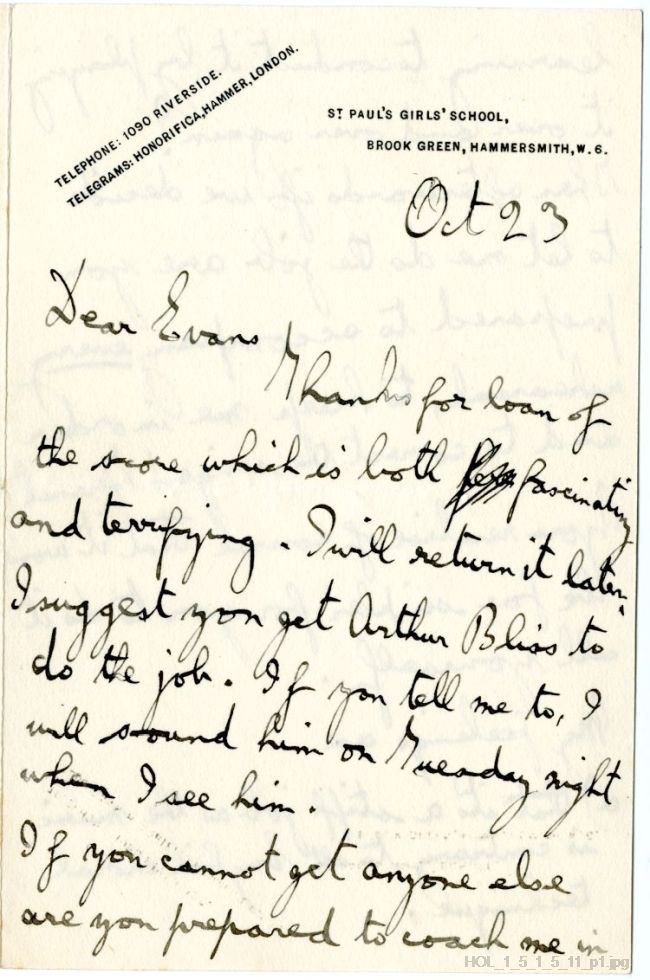 TELEPHONE: 1090 RIVERSIDE.
TELEGRAMS: HONORIFICA, HAMMER, LONDON.
ST PAUL'S GIRLS' SCHOOL,
BROOK GREEN, HAMMERSMITH, W. 6.
Oct 23
Dear Evans
Thanks for loan of
the score which is both fascinating
and terrifying. I will return it later.
I suggest you get Arthur Bliss to
do the job. If you tell me to, I
will sound him on Tuesday night
when I see him.
If you cannot get anyone else
are you prepared to coach me in
HOL_1_5_1_5_11_p1.jpg